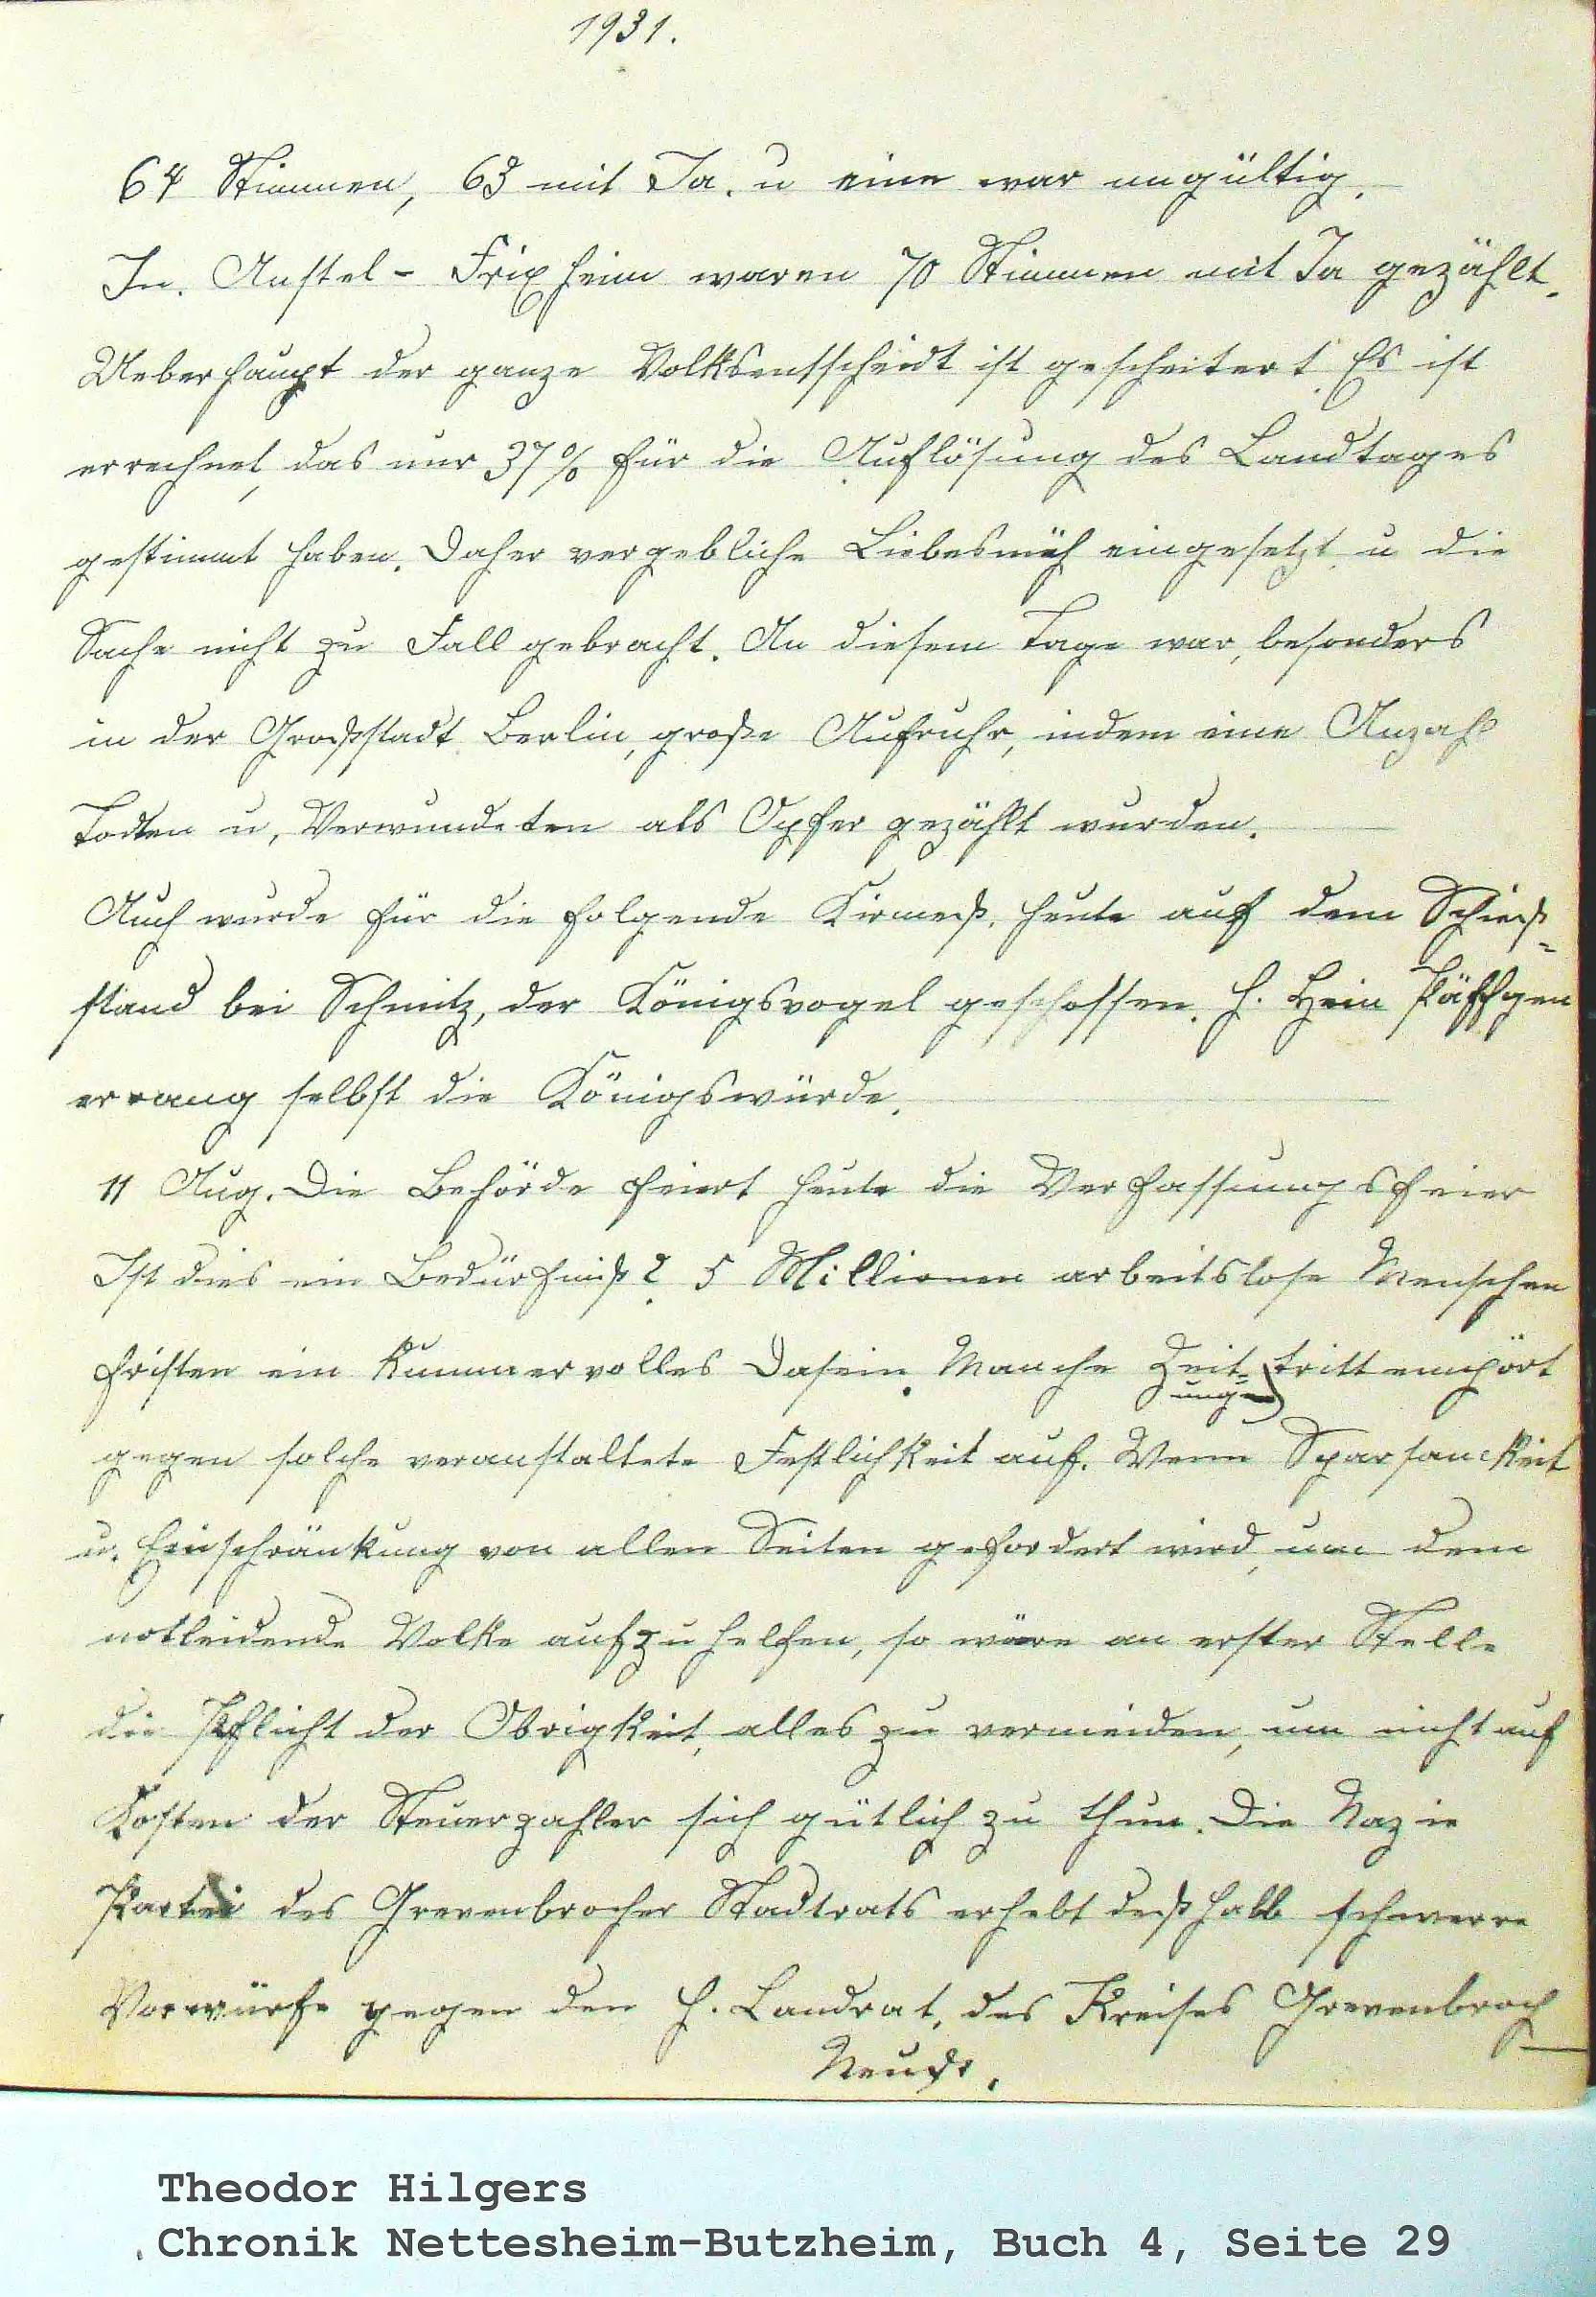 1931.
64 Stimmen, 63 mit Ja. u eine war ungültig.
In. Anstel - Frixheim waren 70 Stimmen mit Ja gezählt.
Ueberhaupt der ganze Volksentscheidt ist gescheitert. Es ist
errechnet, das nur 37% für die Auflösung des Landtages
gestimmt haben. Daher vergebliche Liebesmüh eingesetzt u die
Sache nicht zu Fall gebracht. An diesem Tage war, besonders
in der Großstadt Berlin, große Aufruhr, indem eine Anzahl
Todten u, Verwundeten als Opfer gezählt wurden.
Auch wurde für die folgende Kirmeß, heute auf dem Schieß=
stand bei Schmitz, der Königsvogel geschossen. H. Hein Päffgen
errang selbst die Königswürde.
11 Aug. Die Behörde feiert heute die Verfassungsfeier
Ist dies ein Bedürfniß? 5 Millionen arbeitslose Menschen
fristen ein Kummervolles Dasein. Manche Zeit= tritt empört
ung
gegen solche veranstaltete Festlichkeit auf. Wenn Sparsamkeit
u. Einschränkung von allen Seiten gefordert wird, um dem
notleidende Volke aufzuhelfen, so wäre an erster Stelle
die Pflicht der Obrigkeit, alles zu vermeiden, um nicht auf
Kosten der Steuerzahler sich gütlich zu thun. Die Nazie
Partei des Grevenbrocher Stadtrats erhebt deßhalb schwerre
Vorwürfe gegen den H. Landrat, des Kreises Grevenbroch
Neuß.
Theodor Hilgers
Chronik Nettesheim-Butzheim, Buch 4, Seite 29